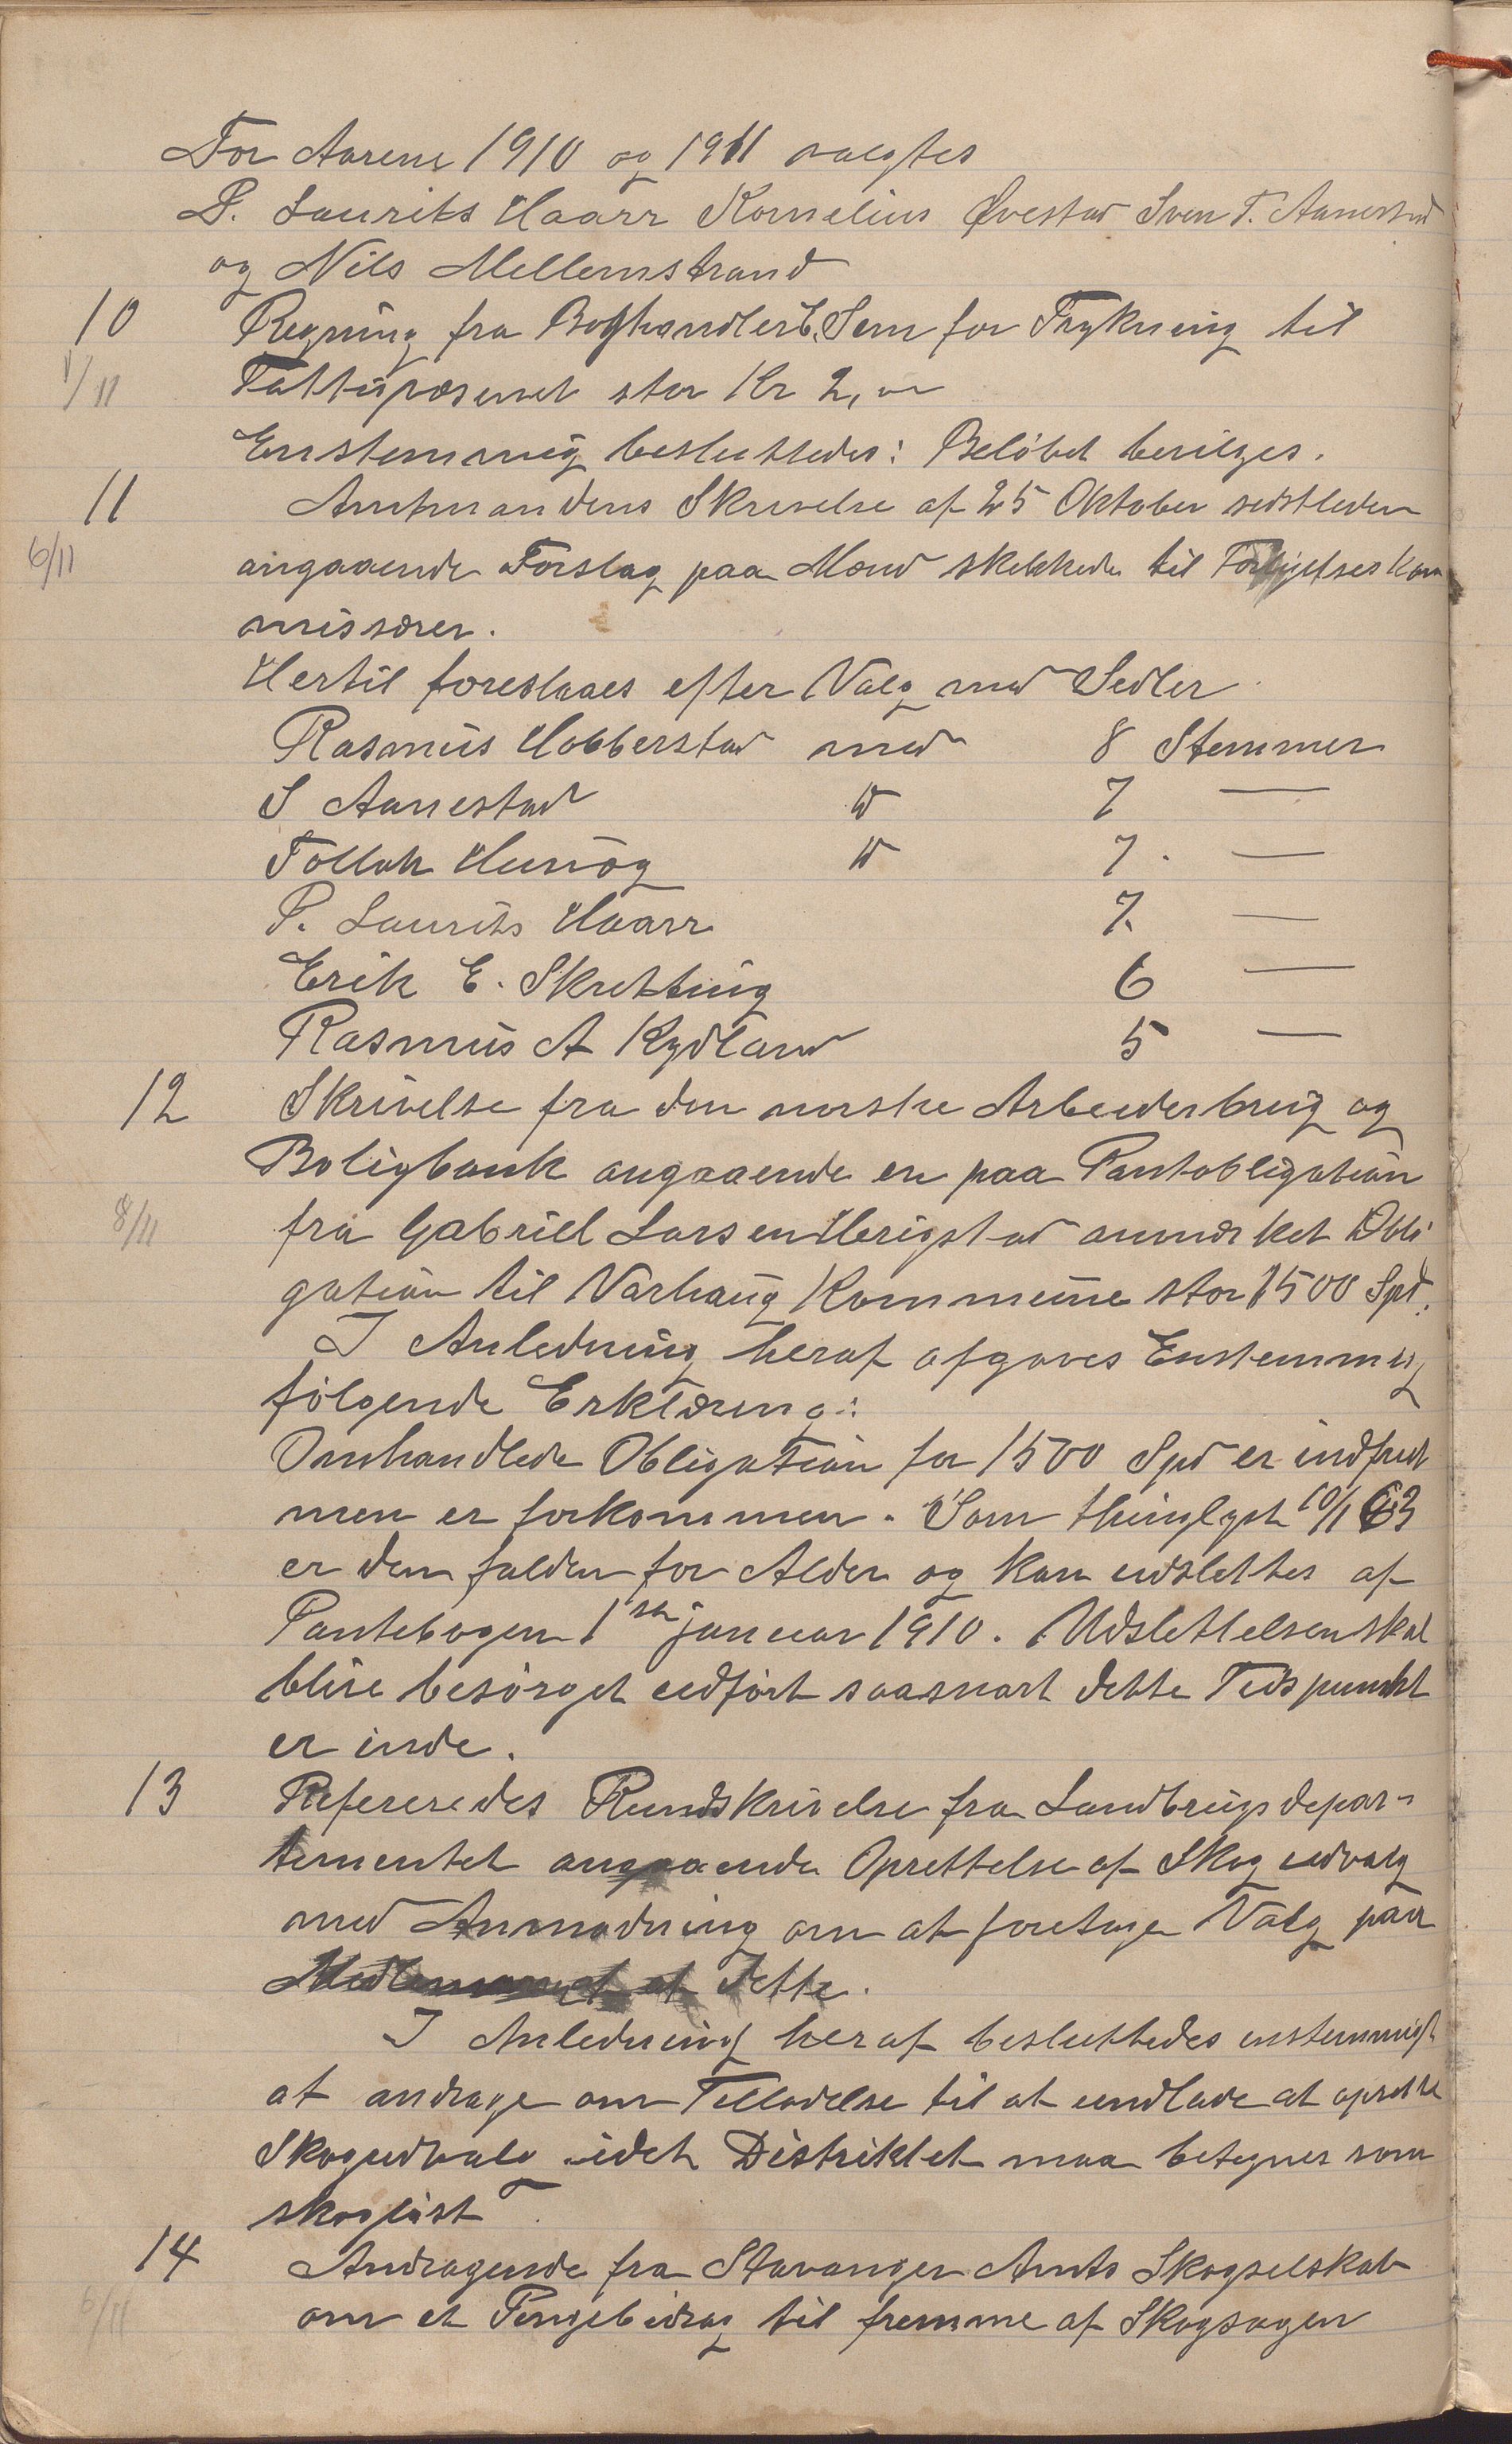 For Aarene 1910 og 1911 valgtes
P. Laurits Haarr Kornelius Øvestad Sven T. Aanestad
og Nils Mellemstrand
10 Regning fra Boghandler E. Sem for Trykning til
1/11 Fattigvæsenet stor Kr 2,00
Enstemmig besluttedes: Beløbet bevilges.
11 Amtmandens Skrivelse af 25 Oktober sidstleden
6/11 angaaende Forslag paa Mænd skikkede til Forligelseskom
missærer.
Hertil foreslaaes efter Valg med Sedler
Rasmus Hobberstad med 8 Stemmer
S Aanestad " 7 —
Tollak " 7. —
P. Laurits Haarr 7. —
Erik E. Skretting 6 —
Rasmus A Kydland 5 —
12 Skrivelse fra den norske Arbeiderbrug og
Boligbank angaaende en paa Pantobligation
8/11 fra Gabriel Larsen Herigstad anmærket Obli
gation til Varhaug Kommune stor 1500 Spd.
I Anledning heraf afgaves Enstemmig
følgende Erklæring:
Omhandlede Obligation for 1500 Spd er indfriet
men er forkommen. Som thinglyst 10/1 63
er den falden for Alder og kan udslettes af
Pantebogen 1ste januar 1910. Udslettelsen skal
blive besørget udført saasnart dette Tidspunkt
er inde.
13 Refereredes Rundskrivelse fra Landbrugsdepar-
tementet angaaende Oprettelse af Skogudvalg
med Anmodning om at foretage Valg paa
Medlemmer af dette.
I Anledning heraf besluttedes enstemmigt
at andrage om Tilladelse til at undlade at oprette
Skogudvalg idet Distriktet maa betegnes som
skogløst.
14 Andragende fra Stavanger Amts Skogselskab
6/11 om et Pengebidrag til fremme af Skogsagen